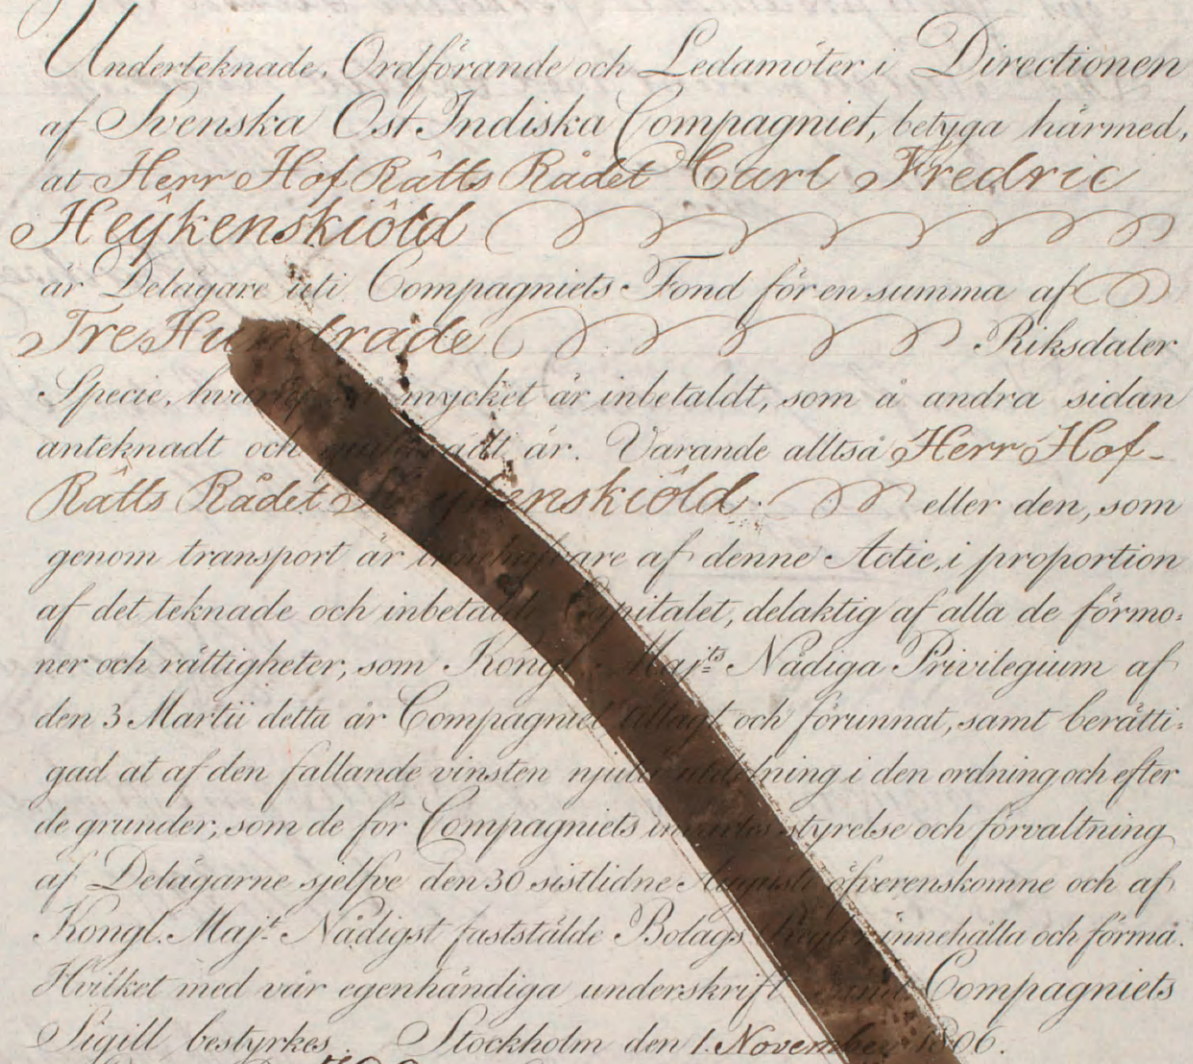 Underteknade, Ordförande och Ledamöter i Directionen
af Svenska Ost Indiska Compagniet, betyga härmed,
at Herr Hof Rätts Rådet Carl Fredric
Heÿkenskiöld
är Delägare uti Compagniets Fond för en summa af
Tre Hundrade Riksdaler
Specie, hvaraf mycket är inbetaldt, som å andra sidan
anteknadt och qvitteradt är. Varande alltså Herr Hof-
Rätts Rådet Heÿkenskiöld eller den, som
genom transport är innehafvare af denne Actie, i proportion
af det teknade och inbetaldte Capitalet, delaktig af alla de förmo=
ner och rättigheter, som Kongl. Maj:ts Nådiga Privilegium af
den 3 Martii detta år Compagniet tillagt och förunnat, samt berätti=
gad at af den fallande vinsten njuta utdelning i den ordning och efter
de grunder, som de för Compagniets invärtes styrelse och förvaltning
af Delägarne sjelfve den 30 sistlidne Augusti öfverenskomne och af
Kongl. Maj:t Nådigst faststälde Bolags Regler innehålla och förmå.
Hvilket med vår egenhändiga underskrift samt Compagniets
Sigill bestyrkes. Stockholm den 1. November 1806.